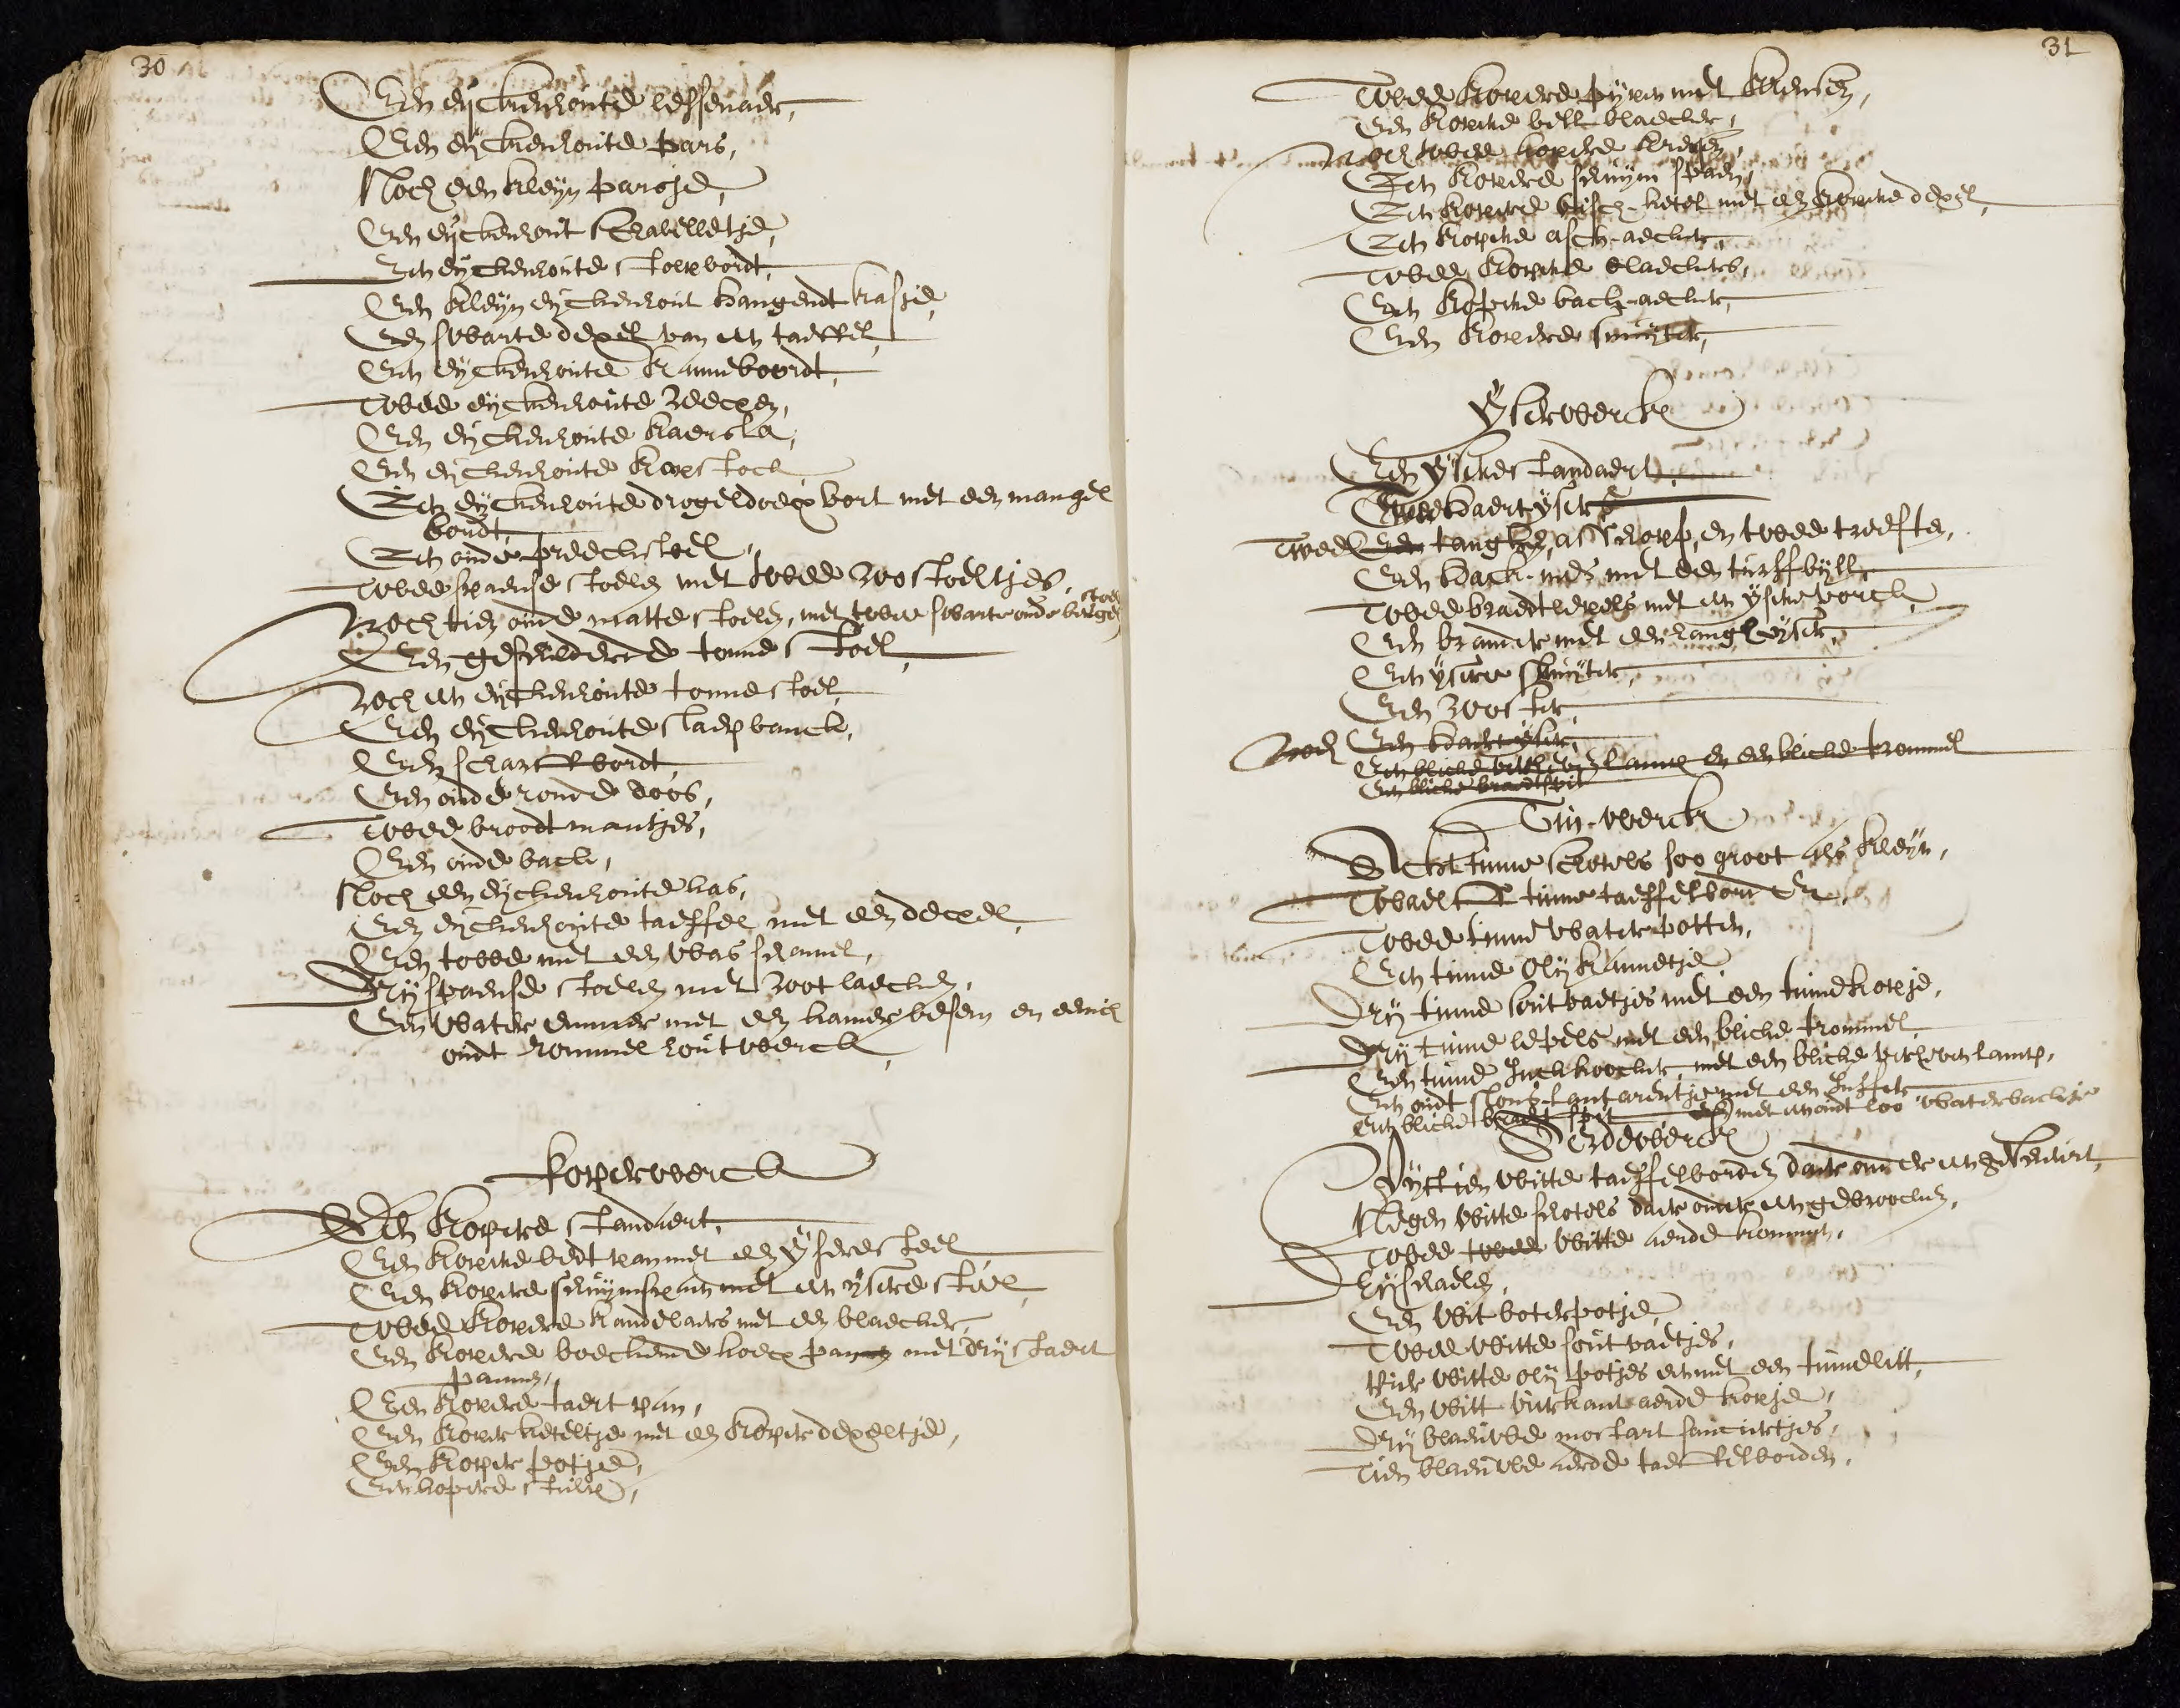 30
Een eijckenhoute lessenaer,
Een eijckenhoute pars,
Noch een kleijn parsje,
Een eijckenhout schabelletje,
Een eijckenhoute stoelvordt,
Een kleijn eijckenhout hangendt kasje,
Een swarte dexel van een taeffel,
Een eijckenhoute kanneboordt,
Twee eijckenhoute
Een eijckenhoute kaersla,
Een eijckenhoute kapstock
Een eijckenhoute drogeldoeck bort met een mangel
boudt,
Een oude preeckstoel,
Twee spaense stoelen met twee voostoeltjes,
Noch tien oude matte stoelen, met twee swarte oude
Een geschilderde tonne stoel,
Noch een eijckenhoute tonne stoel,
Een eijckenhoute slaepbanck,
Een schafbordt,
Een oude ronde doos,
Twee broodt mantjes,
Een oude back,
Noch een eijckenhoute kas,
Een eijckenhoute taeffel met een dexel,
Een tobbe met een was schamel,
Drij spaense stoelen met root laecken,
Een water emmer met een kamer besem en eenich
oudt rommel houtwerck,
Koperwerck
Een kopere standaert,
Een kopere bedt pan met een ijsere steel
Een kopere schuijmspaen met een ijsere steel,
Twee kopere kandelaers met een blaecker,
Een kopere boeckende koeck pan met drij staert
pannen,
Een kopere taert pan,
Een koper keteltje met een koper dexeltje,
Een koper potje,
Een kopere stulp,
31
Twee kopere pijpen met
Een kopere bell blaecker,
Noch twee kopere
Een kopere schuijm spaen,
Een kopere visch-ketel met een kopere dexel,
Een kopere asch-aecker,
Twee kopere blaeckers,
Een kopere back-aecker,
Een kopere snuijter,
Yserwerck
Een ijsere standaert,
Twee haert ijsers
Twee Een tanghen, asschop, en twee treeften,
Een hack-mes met een turffbijll,
Twee braedtlepels met een ijsere vorck,
Een brander met een hangh ijser,
Een ijsere snuijter,
Een rooster,
Noch Een haert ijser,
Een blicke lamp en een blicke trommel
Een blicke braedtspit
Tin-werck
Acht tinne schotels soo groot als kleijn,
Twaelf tinne taeffelborden,
Twee tinne waterpotten,
Een tinne olij kannetje
Drij tinne soutvaetjes met een tinne kopje,
Drij tinne lepels met een blicke trommel
Een tinne Inckkoocker, met een blicke lamp,
Een oudt slons-lantarentje met een
Een blicke braedt spit met een oudt loo waterbackje
Erdewerck
Vijftien witte taeffelborden daer onder een gescheurt,
Negen witte schotels daer onder een gebroocken,
Twee twee witte aerde kommen,
Drij schaelen,
Een wit boterpotje,
Twee witte soutvaetjes,
Vier witte olij potjes een met een tinne litt,
Een witt vierkante aerde kopje,
Drij blaeuwe mostart sauciertjes,
Tien blaeuwe aerde taeffelborden,